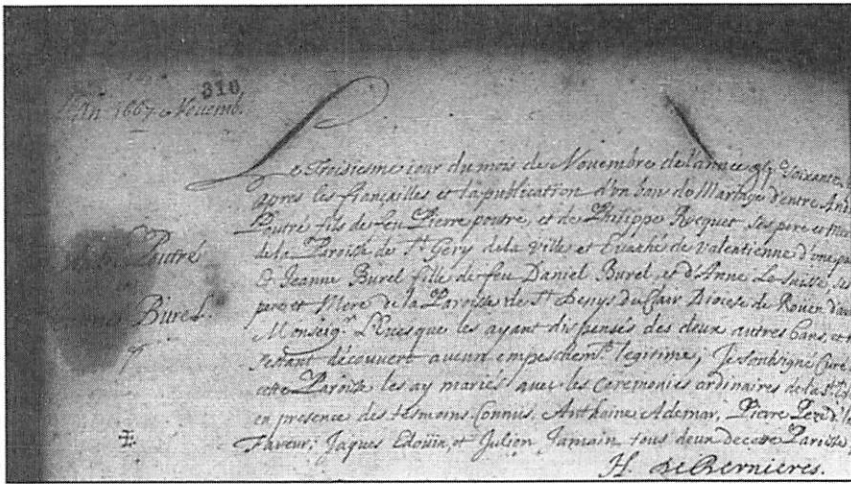 310
L'An 1667 Novemb.
Le Troisiesme iour du mois de Novembre de l'annee soixante,
apres les fiançailles et la publication d'un ban de Mariage d'entre And
Poutré fils de feu Pierre poutre, et de Philippe Rocquet ses pere et Me
de la Paroisse de St Gery de la Ville et Evaché de Valentienne d'une pa
Poutré
& Jeanne Burel fille de feu Daniel Burel et d'Anne Le Suisse, ses
pere et Mere de la Paroisse de St Denys du Clair Diocese de Rouen d'au
Burel
Monseigr L'Evesque les ayant dispensés des deux autres bans, et
s'estant découvert aucun empeschemt legitime; Je soubsigné Curé
cette Paroisse les ay mariés avec les Ceremonies ordinaires de la Ste
en presence des tesmoins Connus, Anthoine Ademar, Pierre
Jaques Edoüin, et Julien Jamain tous deux de cette Paroisse,
H. de Bernieres.